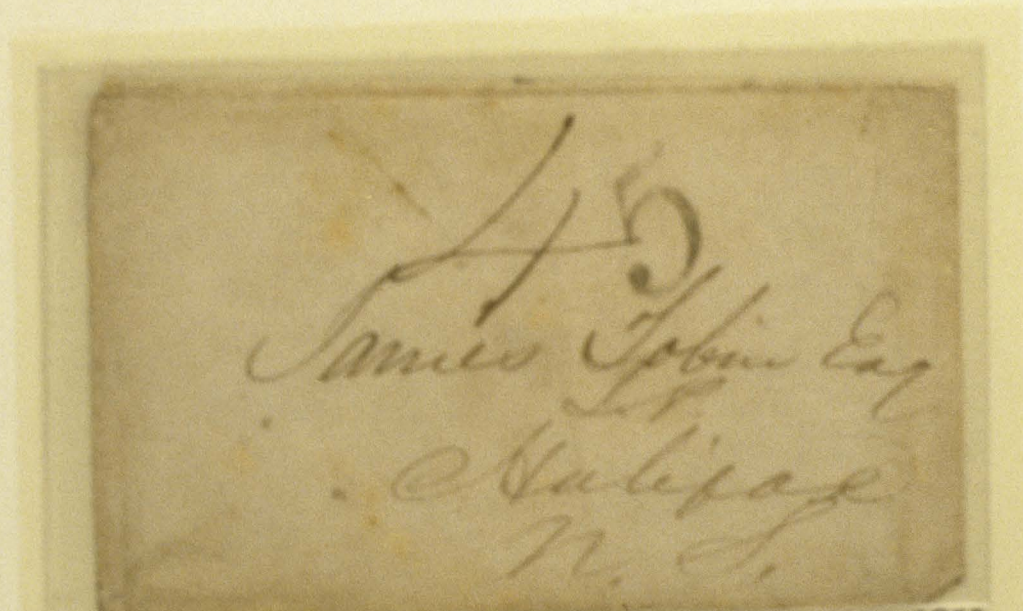 45
James Tobin Esq
Halifax
N. S.